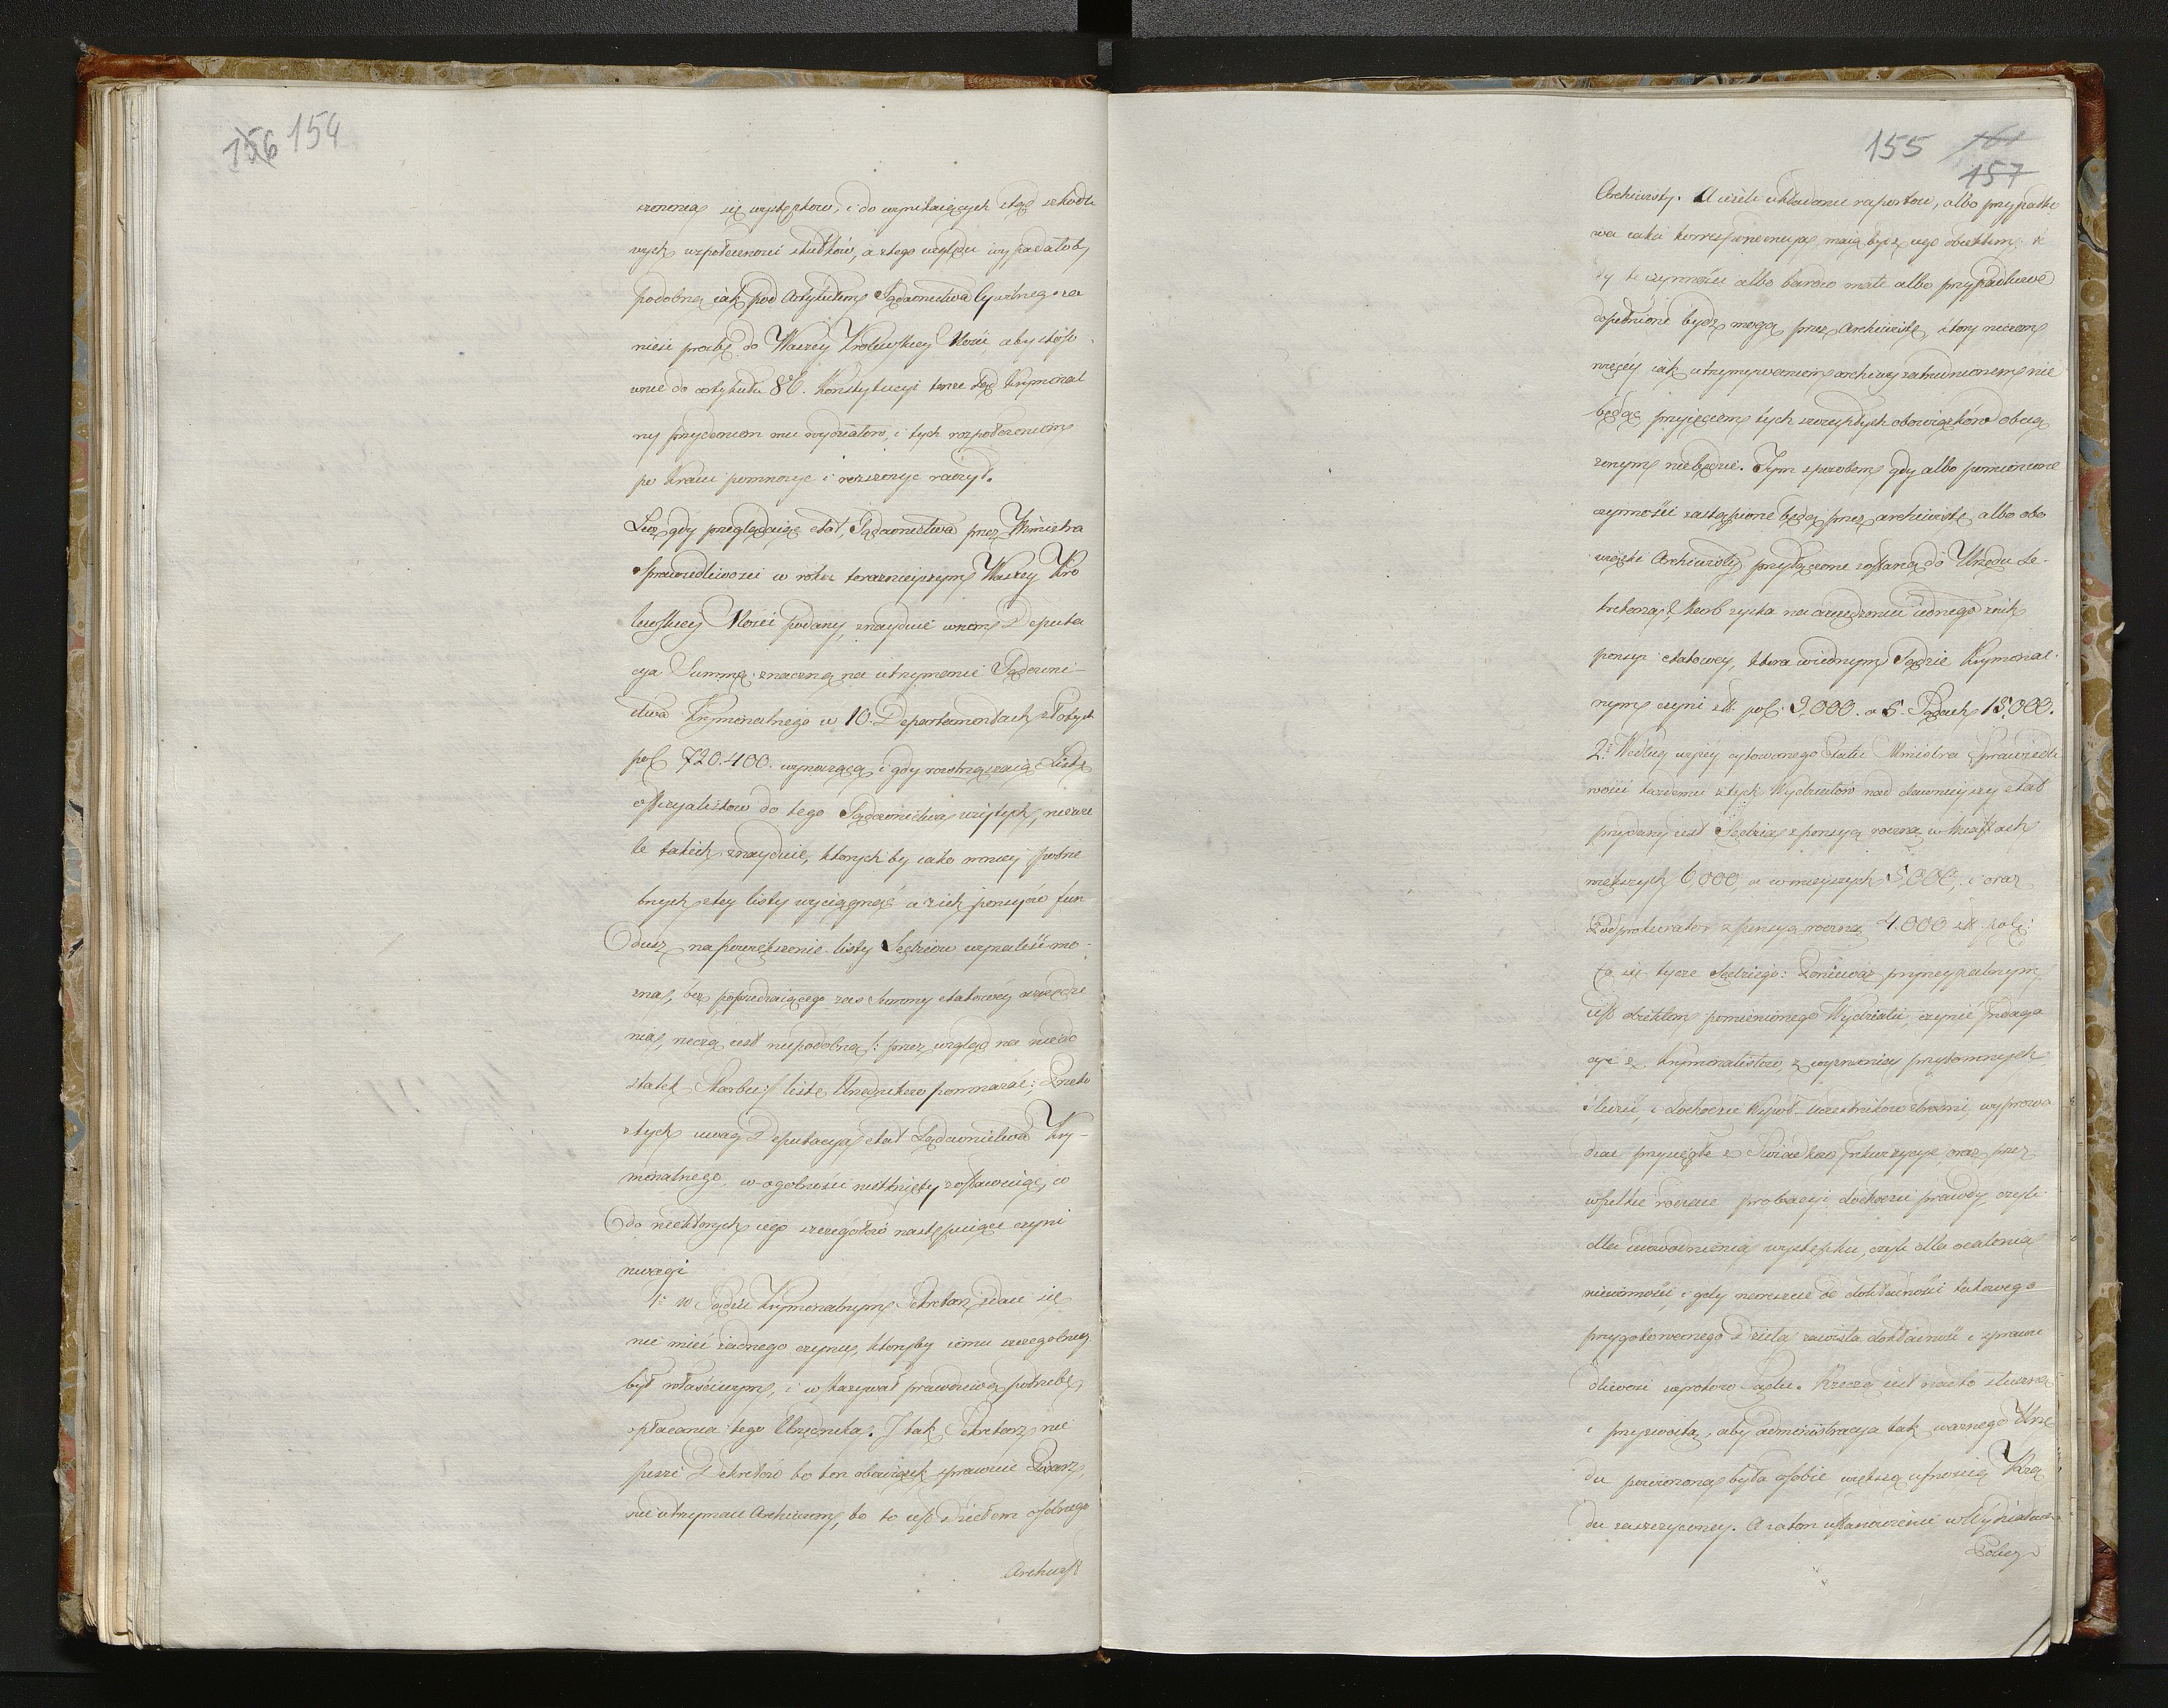 156 154
szenia się występków, i do wynikaiących ztąd szkodli
wych społeczności skutków, a z tego względu wypadałoby
podobną iak pod Artykułem Sądownictwa Cywilnego za
nieść prośbę do Waszey Królewskiey Mości, aby stóso
wnie do artykułu 8º. Konstytucyi tenże Sąd Kryminal
ny przydaniem mu wydziałow, i tych rozpołożeniem
po Kraiu pomnożyć i rozszerzyć raczył.
Lecz gdy przeglądaiąc etat, Sądownictwa przez Ministra
Sprawiedliwości w roku teraznieyszym Waszey Kro
lewskiey Mości podany, znayduie w nim Deputa
cya Summę znaczną na utrzymanie Sądowni-
ctwa Kryminalnego w 10. Departamentach złotych
pol 720.400. wynoszącą i gdy roztrząsaiąc Listę
officyalistow do tego Sądownictwa wziętych, niewie
le takich znayduie, którychby iako mniey potrze
bnych z tey listy wyciągnąć a z ich pensyów fun
dusz na powiększenie listy Sędziow wynaleść mo-
zna, bez poprzedzaiącego zas Summy etatowéy
nia, rzeczą iest niepodobną /: przez wzgląd na niedo
statek Skarbu :/ listę Urzędnikow pomnażać; Przeto
z tych uwag Deputacya etat Sądownictwa Kry-
minalnego, w ogolności nietknięty zostawuiąc, co
do niektorych iego szczegółów następuiące czyni
uwagi
1º. w Sądzie Kryminalnym Sekretarz zdaie się
nie mieć żadnego czynu, któryby iemu szczegolnie
był właściwym, i wskazywał prawdziwą potrzebę
opłacania tego Urzędnika. I tak Sekretarz nie
pisze Dekretów bo ten obowiązek sprawuie Pisarz,
nie utrzymuie Archiwum, bo to iest dziełem osobnego
Archiwist
155 161
157
Archiwisty. A ieżeli układanie raportów, albo przypadko
wa iaka korrespondencya, maią być iego obiektem, te
dy te czynności albo bardzo małe albo przypadkowe
dopełnione bydź mogą przez Archiwistę, który niczem
więcéy iak utrzymywaniem archiwy zatrudnionym nie
będąc przyięciem tych szczupłych obowiązków obcią
żonym niebędzie. Tym sposobem gdy albo pomienione
czynności zastąpione będą przez archiwistę albo obo
wiązki Archiwisty przyłączone zostaną do Urzędu Se-
kretarza, Skarb zyska na oszczędzeniu iednego z nich
pensyi etatowéy, która w iednym Sądzie Kryminal-
nym czyni zł: pol: 3,000. a 5. Sądach 15,000.
2º. Według wyżéy cytowanego Etatu Ministra Sprawiedli
wości każdemu z tych Wydziałów nad dawnieyszy etat
przydany iest Sędzia z pensyą roczną w Miastach
większych 6,000, a w mnieyszych 5,000, i oraz
Podprokurator z pensyą roczną 4.000 zł. pol:
Co się tycze Sędziego: Ponieważ pryncypalnym
iest obiektem pomienionego Wydziału, czynić Indaga
cye z Kryminalistow, z wyznania przytomnych
śledzić, i dochodzić uczestników zbrodni, wyprowa
dzać przysięgłe z Swiadkow Inkwizycye, oraz przez
wszelkie rodzaie probacyi dochodzić prawdy, czyli
dla udowodnienia występku, czyli dla ocalenia
niewinności, i gdy nareszcie od dokładności takowego
przygotowanego dzieła zawisła dokładność i sprawie
dliwość wyroków Sądu. Rzeczą iest nadto słuszną
i przyzwoitą, aby administracya tak ważnego Urzę
du powierzoną była osobie większą ufnością Rzą
du zaszczyconey. A zatem ustanowienie w Wydziałach